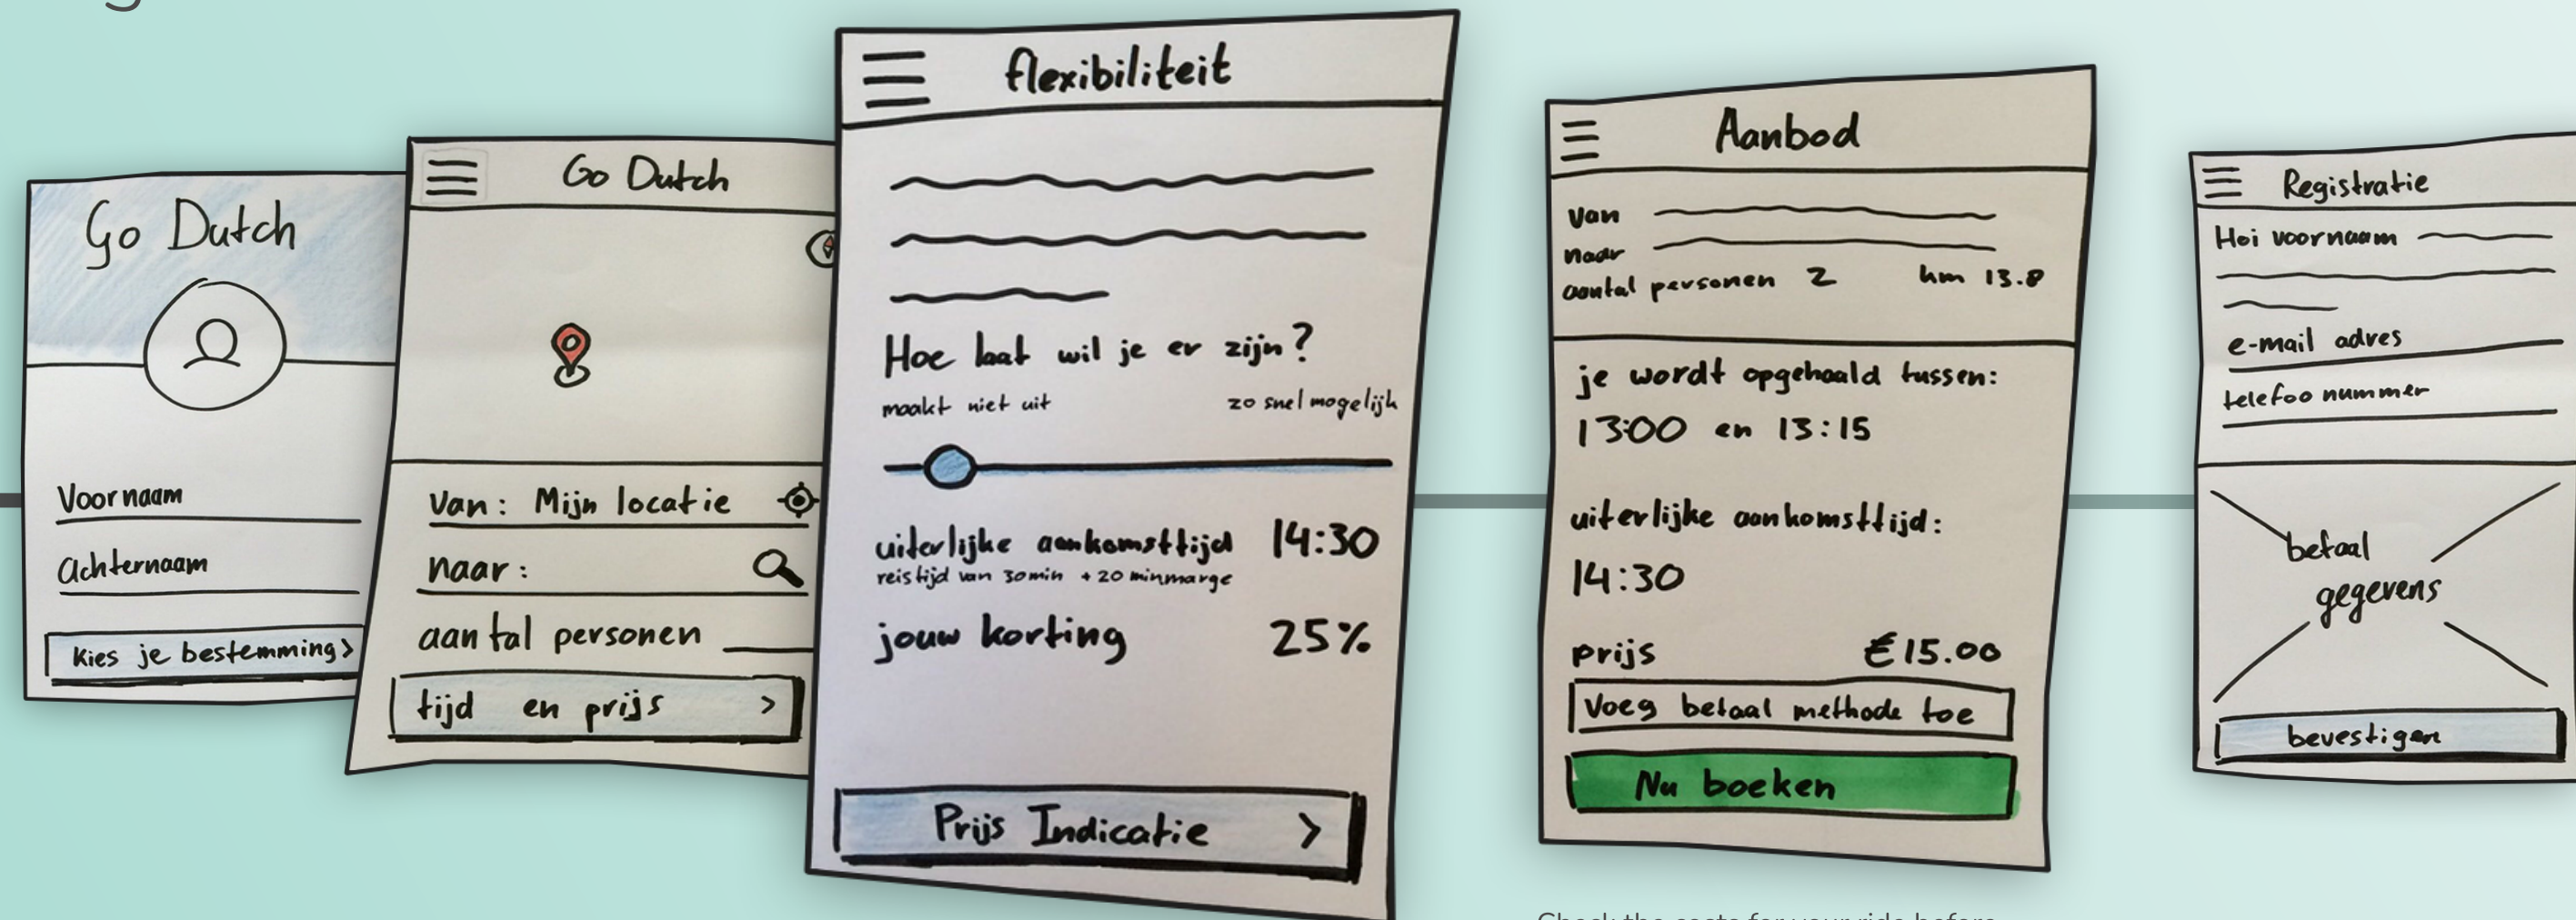 Go Dutch
Voornaam
Achternaam
Kies je bestemming >
Go Dutch
van: Mijn locatie
naar:
aantal personen
tijd en prijs >
flexibiliteit
Hoe laat wil je er zijn?
maakt niet uit zo snel mogelijk
uiterlijke aankomsttijd 14:30
reistijd van 30min + 20 minmarge
jouw korting 25%
Prijs Indicatie >
Aanbod
van
naar
aantal personen 2 km 13.8
je wordt opgehaald tussen:
13:00 en 13:15
uiterlijke aankomsttijd:
14:30
prijs €15.00
Voeg betaal methode toe
Nu boeken
Registratie
Hoi voornaam
e-mail adres
telefoo nummer
betaal
gegevens
bevestigen
Check the costs for your ride before